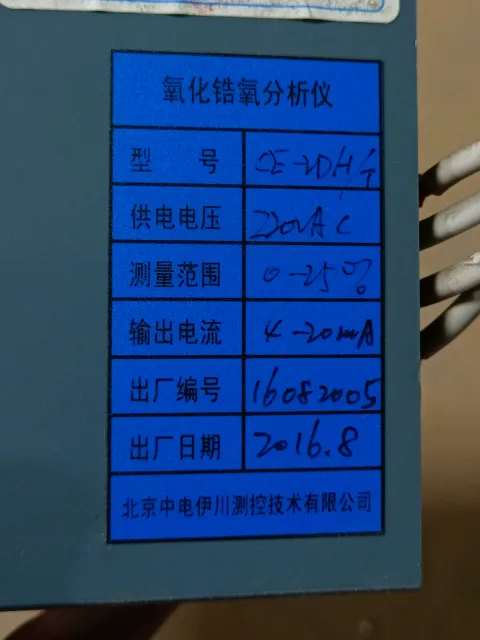 氧化锆氧分析仪
型 号 CE-2DH/T
供电电压 220VAC
测量范围 0-25%
输出电流 4-20mA
出厂编号 16082005
出厂日期 2016.8
北京中电伊川测控技术有限公司